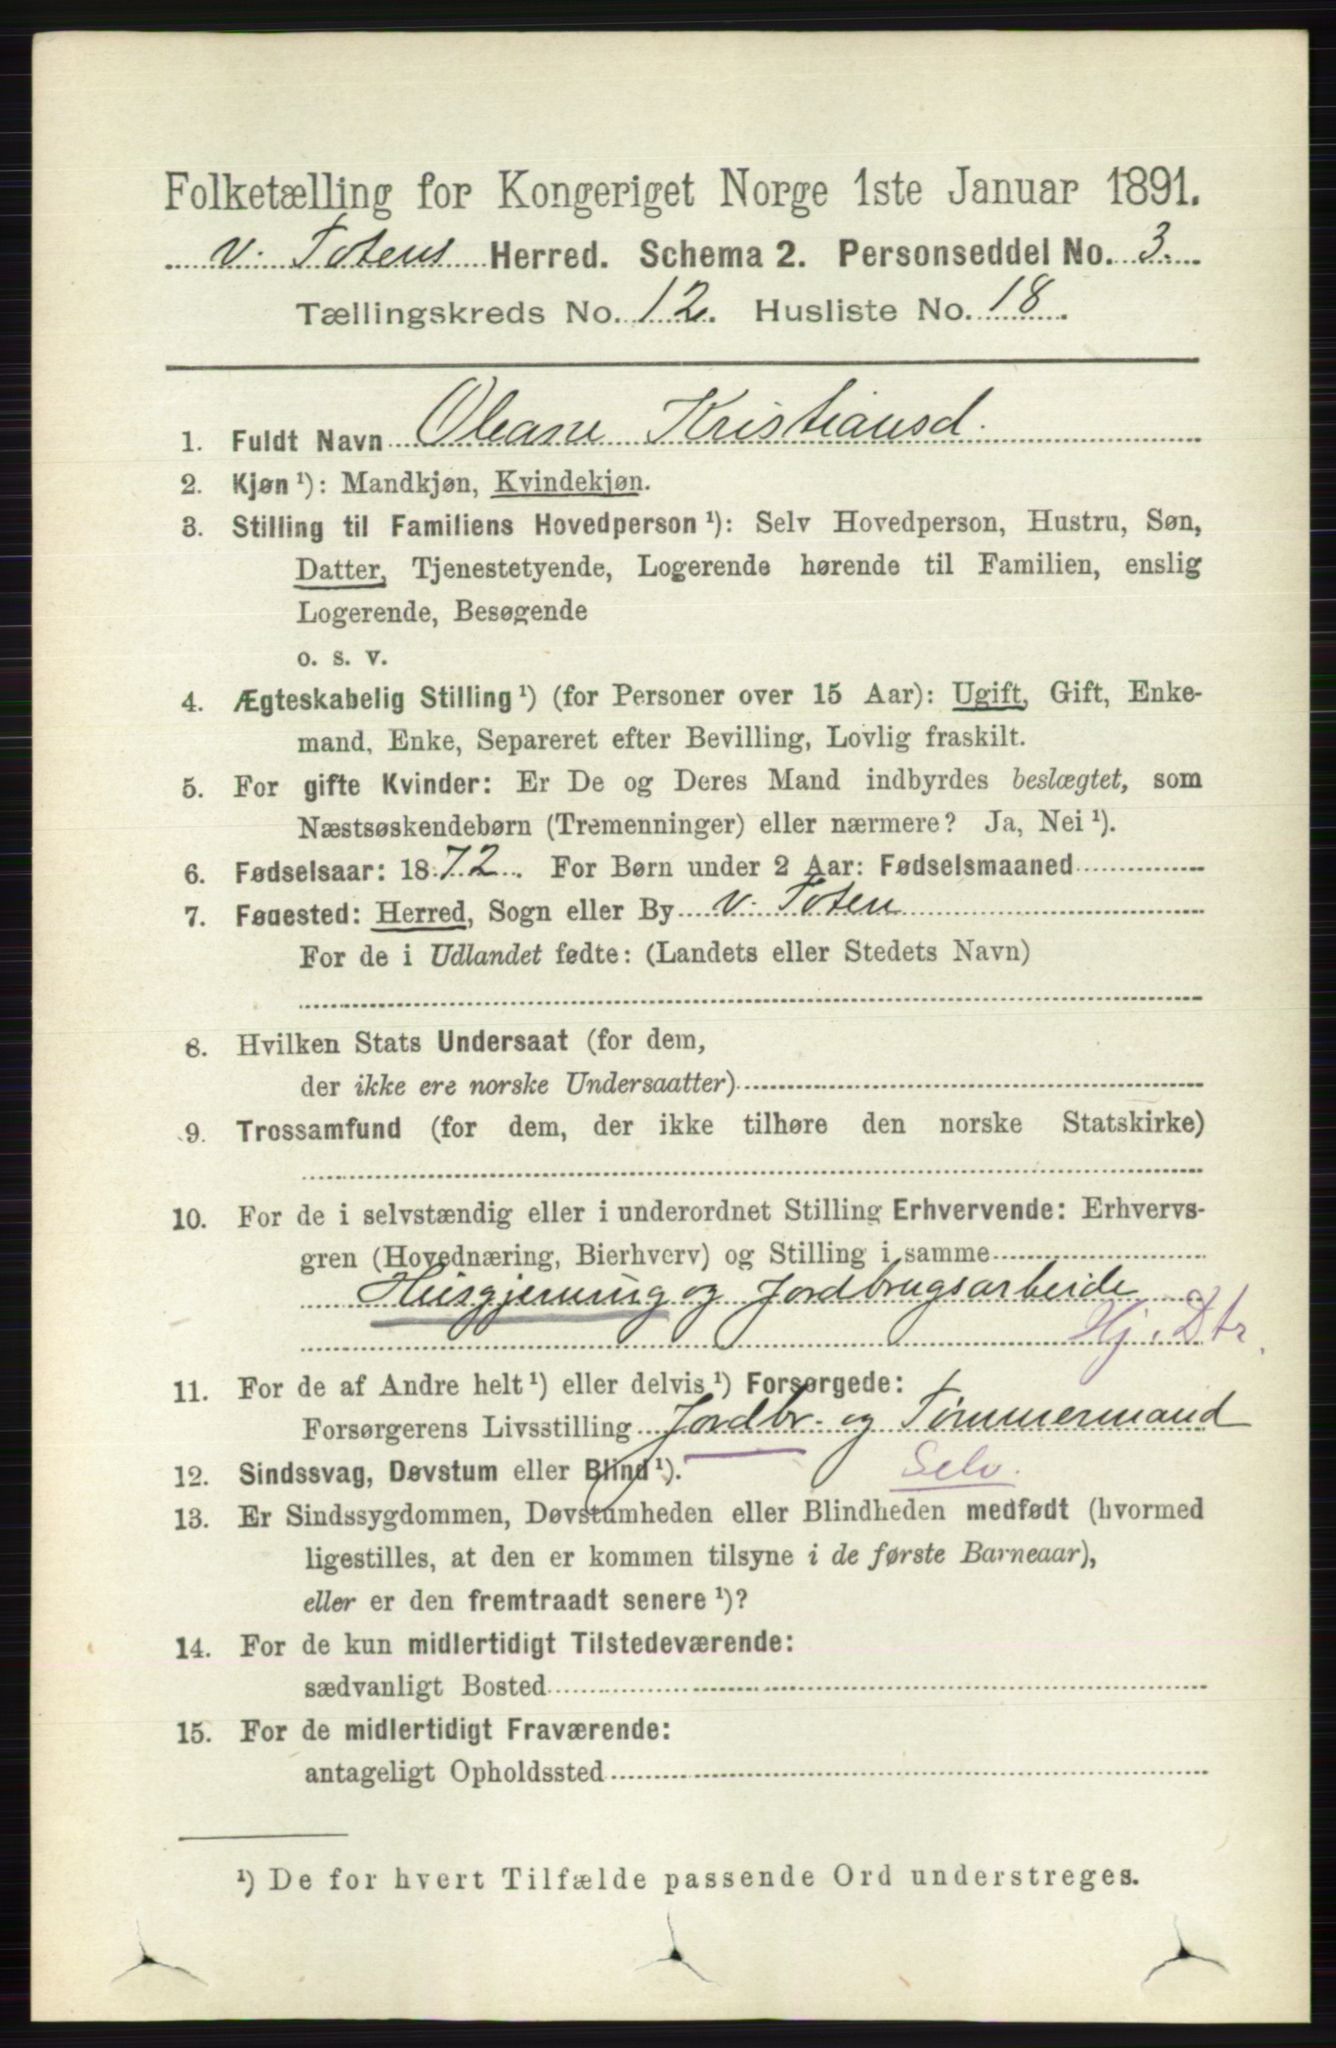 Folketælling for Kongeriget Norge 1ste Januar 1891.
V. Totens Herred. Schema 2. Personseddel No. 3.
Tællingskreds No. 12. Husliste No. 18.
1. Fuldt Navn Oleane Kristiansd.
2. Kjøn ¹): Mandkjøn, Kvindekjøn.
3. Stilling til Familiens Hovedperson ¹): Selv Hovedperson, Hustru, Søn,
Datter, Tjenestetyende, Logerende hørende til Familien, enslig
Logerende, Besøgende
o. s. v.
4. Ægteskabelig Stilling ¹) (for Personer over 15 Aar): Ugift, Gift, Enke-
mand, Enke, Separeret efter Bevilling, Lovlig fraskilt.
5. For gifte Kvinder: Er De og Deres Mand indbyrdes beslægtet, som
Næstsøskendebørn (Tremenninger) eller nærmere? Ja, Nei ¹).
6. Fødselsaar: 1872. For Børn under 2 Aar: Fødselsmaaned
7. Fødested: Herred, Sogn eller By V. Toten
For de i Udlandet fødte: (Landets eller Stedets Navn)
8. Hvilken Stats Undersaat (for dem,
der ikke ere norske Undersaatter)
9. Trossamfund (for dem, der ikke tilhøre den norske Statskirke)
10. For de i selvstændig eller i underordnet Stilling Erhvervende: Erhvervs-
gren (Hovednæring, Bierhverv) og Stilling i samme
Husgjerning og Jordbrugsarbeide
Hj. Dtr.
11. For de af Andre helt ¹) eller delvis ¹) Forsørgede:
Forsørgerens Livsstilling Jordbr. og Tømmermand
Selv.
12. Sindssvag, Døvstum eller Blind ¹).
13. Er Sindssygdommen, Døvstumheden eller Blindheden medfødt (hvormed
ligestilles, at den er kommen tilsyne i de første Barneaar),
eller er den fremtraadt senere ¹)?
14. For de kun midlertidigt Tilstedeværende:
sædvanligt Bosted
15. For de midlertidigt Fraværende:
antageligt Opholdssted
¹) De for hvert Tilfælde passende Ord understreges.